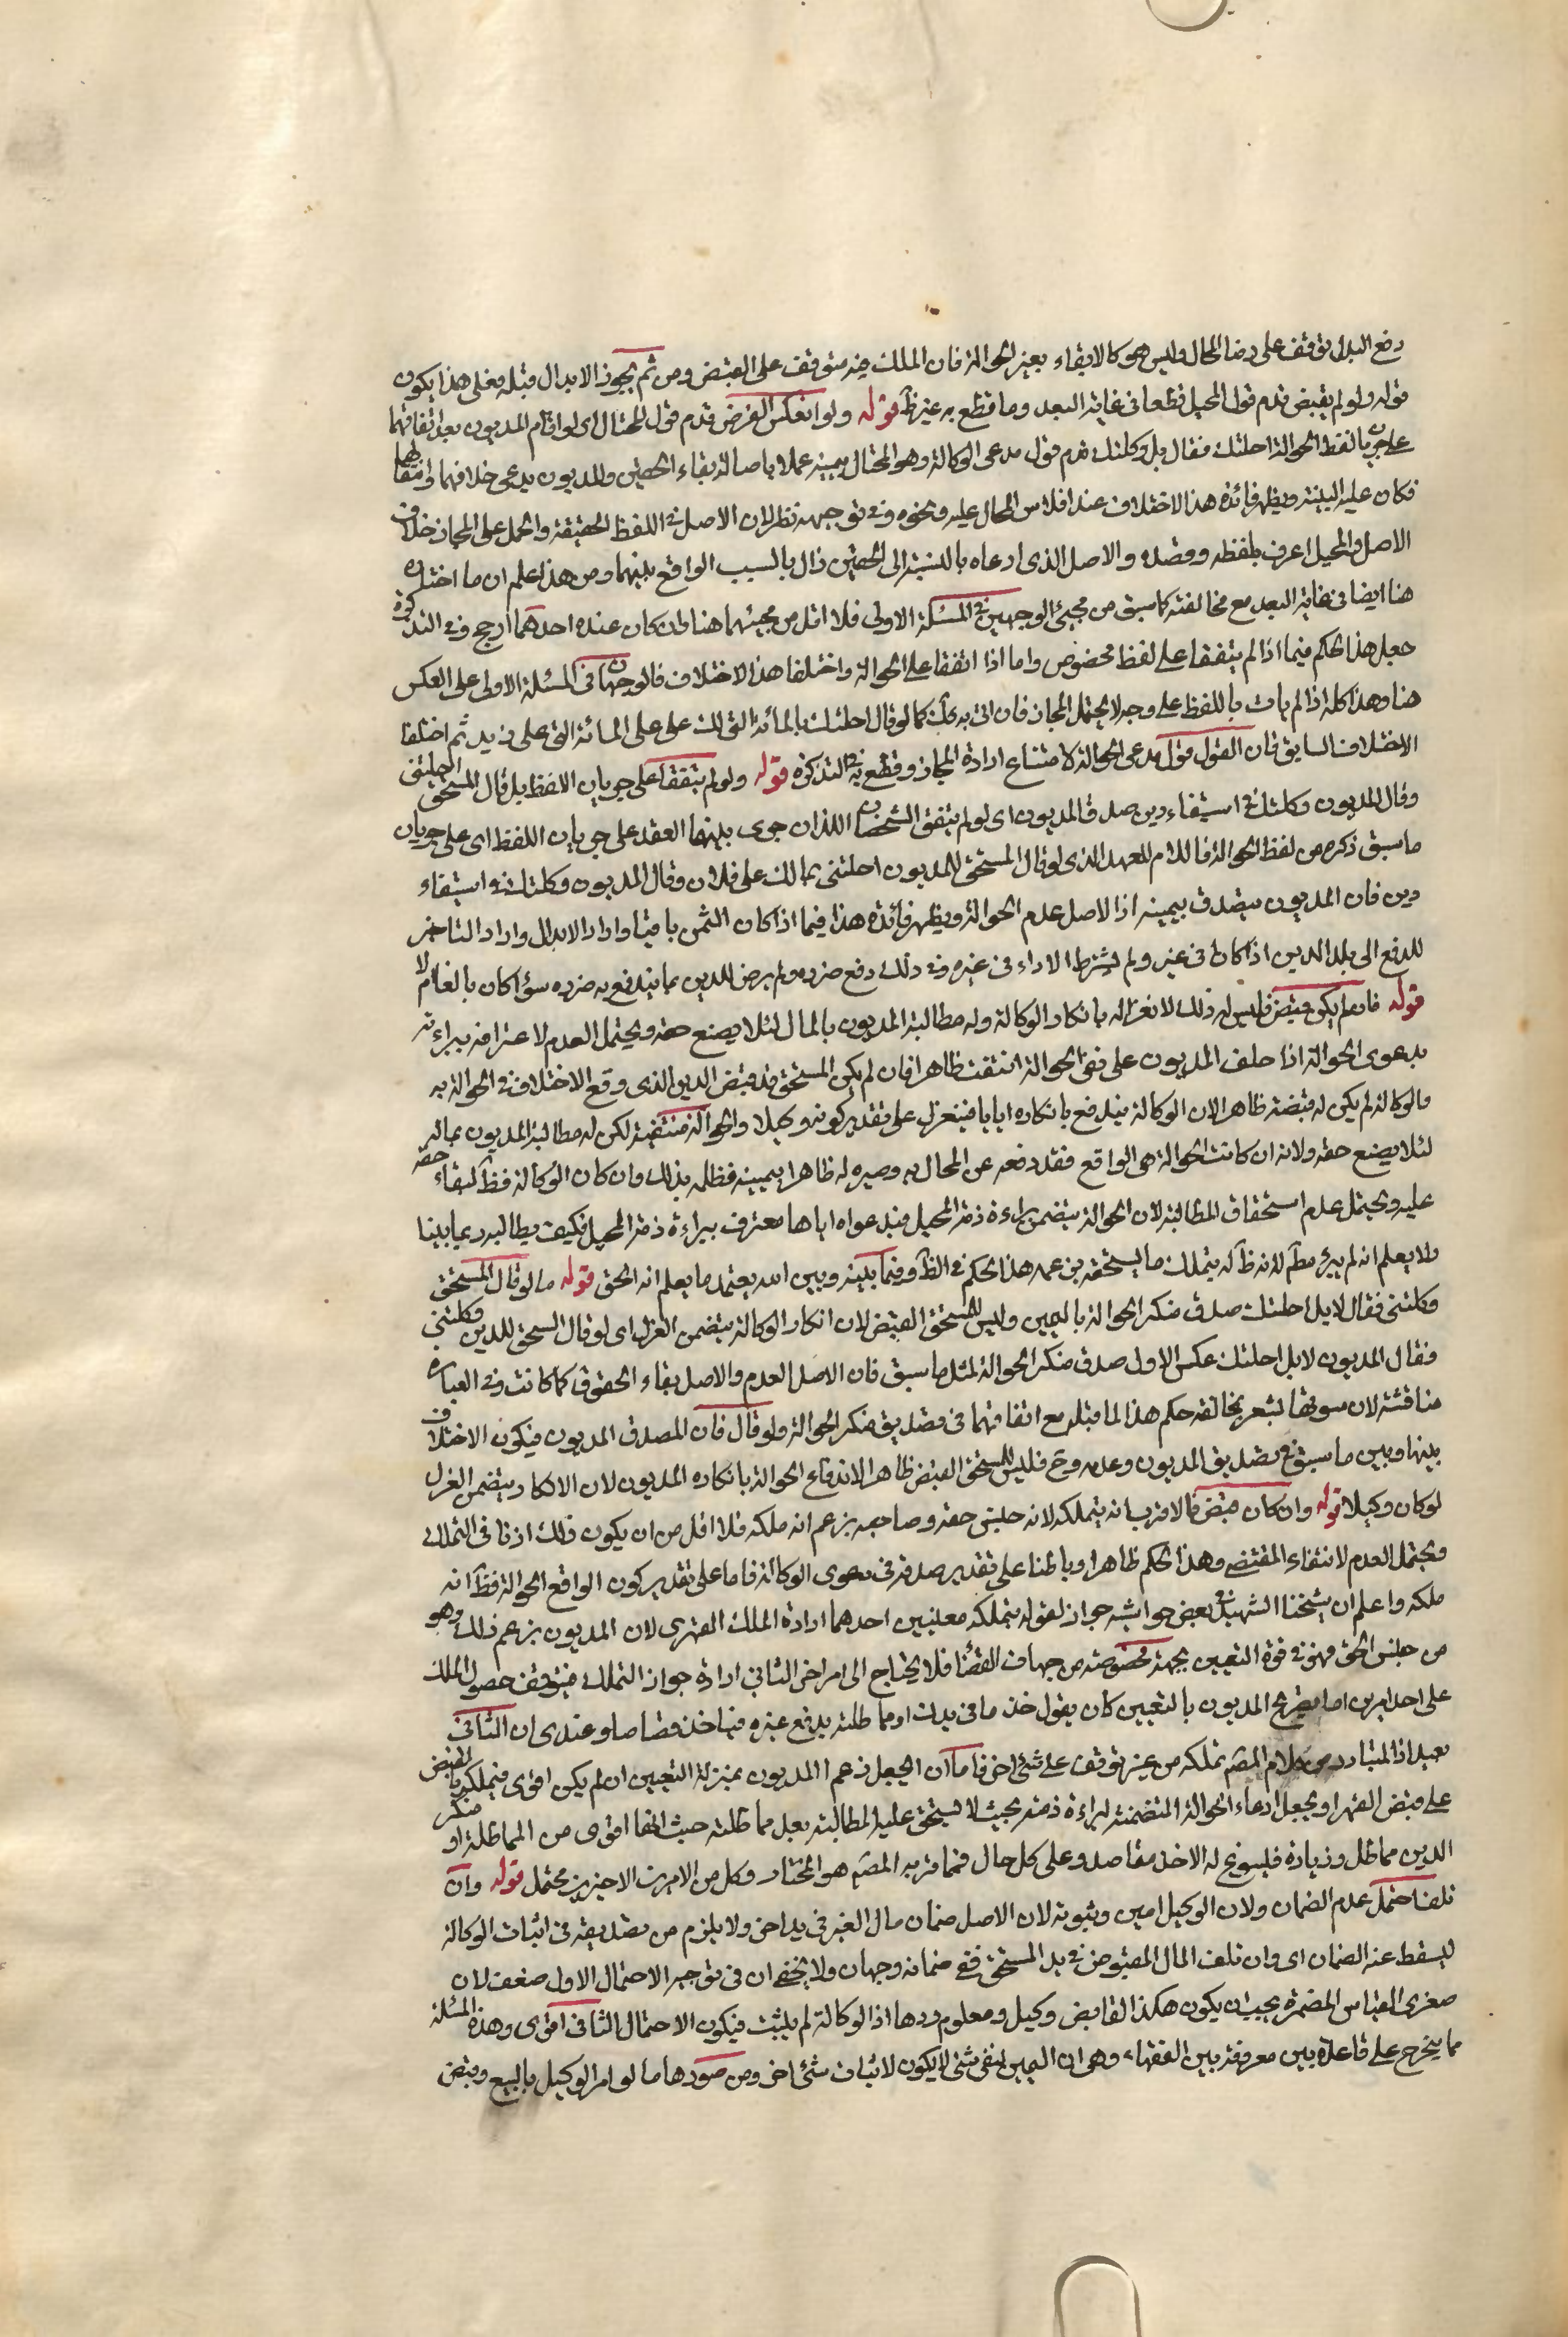 دفع البدل يتوقف على رضا المحال وليس هو كالايفاء بغير الحوالة فان الملك فيه متوقف على القبض ومن ثم يجوز الابدال قبله فعلى هذا يكون
قوله ولو لم يقبض قدم قول المحيل قطعا في غاية البعد وما قطع به غير ظ قوله ولو انعكس الفرض قدم قول المحتال اى لو اقام المديون بعد اتفاقهما
على جريان لفظ الحوالة احلتك فقال بل وكلتك قدم قول مدعى الوكالة وهو المحتال بيمينه عملا باصالة بقاء الحقين والمديون يدعى خلافهما وانتقالهما
فكان عليه البينة ويظهر فائدة هذا الاختلاف عند افلاس المحال عليه ونحوه وفى توجيهه نظر لان الاصل في اللفظ الحقيقة والحمل على المجاز خلاف
الاصل والمحيل اعرف بلفظه وقصده والاصل الذى ادعاه بالنسبة الى الحقين زال بالسبب الواقع بينهما ومن هذا علم ان ما اختاره
هنا ايضا في نهاية البعد مع مخالفته كما سبق من مجيئ الوجهين في المسئلة الاولى فلا اقل من مجيئهما هنا وان كان عنده احدهما ارجح وفى التذكرة
جعل هذا الحكم فيما اذا لم يتفقا على لفظ مخصوص واما اذا اتفقا على الحوالة واختلفا هذا الاختلاف فالوجهان في المسئلة الاولى على العكس
هنا وهذا كله اذا لم يات باللفظ على وجه لا يحتمل المجاز فان اتى به كذلك كما لو قال احلتك بالمائة التى لك على على المائة التى على زيد ثم اختلفا
الاختلاف السابق فان القول قول مدعى الحوالة لامتناع ارادة المجاز وقطع به في التذكرة قوله ولو لم يتفقا على جريان اللفظ بل قال المستحق احلتنى
وقال المديون وكلتك في استيفاء دين صدق المديون اى لو لم يتفق الشخصان اللذان جرى بينهما العقد على جريان اللفظ اى على جريان
ما سبق ذكره من لفظ الحوالة فاللام للعهد الذى لو قال المستحق للمديون احلتنى بمالك على فلان وقال المديون وكلتك في استيفاء
دين فان المديون يصدق بيمينه اذ الاصل عدم الحوالة ويظهر فائدة هذا فيما اذا كان الثمن باقيا واراد الابدال واراد التاخير
للدفع الى بلد الدين اذا كان في غيره ولم يشترط الاداء في غيره وفى ذلك دفع ضرره ولم يرض للدين بما يندفع به ضرره سؤا كان بالغا ام لا
قوله فان لم يكن قبض فليس له ذلك لانعزاله بانكار الوكالة وله مطالبة المديون بالمال لئلا يضيع حقه ويحتمل العدم لاعترافه ببراءته
بدعوى الحوالة اذا حلف المديون على نفى الحوالة انتفت ظاهرا فان لم يكن المستحق قد قبض الدين الذى وقع الاختلاف في الحوالة به
والوكالة لم يكن له قبضه ظاهرا لان الوكالة يندفع بانكاره اياها فينعزل على تقدير كونه وكيلا والحوالة منتفية لكن له مطالبة المديون بماله
لئلا يضيع حقه ولانه ان كانت الحوالة هى الواقع فقد دفعه عن المحال به وصيره له ظاهرا بيمينه فظلمه بذلك وان كان الوكالة فظ لبقاء حقه
عليه ويحتمل عدم استحقاق المطالبة لان الحوالة يتضمن براءة ذمة المحيل فبدعواه اياها معترف ببراءة ذمة المحيل فكيف يطالبه
ولا يعلم انه لم يبرء مط لانه ظ له يتملك ما يستحقه بزعمه هذا الحكم في الظ وفيما بينه وبين الله يعتمد ما يعلم انه الحق قوله ما لو قال المستحق
وكلتنى فقال لا بل احلتك صدق منكر الحوالة باليمين وليس للمستحق القبض لان انكار الوكالة يتضمن العزل اى لو قال المستحق للمديون وكلتنى
فقال المديون لا بل احلتك عكس الاول صدق منكر الحوالة لمثل ما سبق فان الاصل العدم والاصل بقاء الحقوق كما كانت وفى العبارة
مناقشة لان سوقها يشعر بمخالفة حكم هذا لما قبله مع اتفاقهما في تصديق منكر الحوالة ولو قال فان المصدق المديون فيكون الاختلاف
بينها وبين ما سبق في تصديق المديون وعدمه وح فليس للمستحق القبض ظاهرا لاندفاع الحوالة بانكاره المديون لان الانكار يتضمن العزل
لو كان وكيلا قوله وان كان قبض فالاقرب انه يتملكه لانه جنس حقه وصاحبه يزعم انه ملكه فلا اقل من ان يكون ذلك اذنا في التملك
ويحتمل العدم لانتفاء المقتضى وهذا الحكم ظاهرا وباطنا على تقدير صدقه في دعوى الوكالة فاما على تقدير كون الواقع الحوالة فظ انه
ملكه واعلم ان شيخنا الشهيد في بعض حواشيه جوز لقوله يتملكه معنيين احدهما ارادة الملك القهرى لان المديون يزعم ذلك وهو
من جنس الحق فهو في قوة التعيين بجهة مخصوصة من جهات القضا فلا يحتاج الى امر اخر الثاني ارادة جواز التملك فيتوقف حصول الملك
على احد امرين اما تصريح المديون بالتعيين كان يقول خذ ما في يدك او مماطلته بدفع غيره فياخذ قصاصا وعندى ان الثانى
بعيد اذ المتبادر من كلام المصم تملكه من غير توقف على شئ اخر فاما ان يجعل زعم المديون بمنزلة التعيين ان لم يكن اقوى فيملكه بالقبض
على قبض القهر او يجعل ادعاء الحوالة المتضمنة لبراءة ذمته بحيث لا يستحق عليه المطالبة بعد مماطلته حيث انها اقوى من المماطلة او منكر
الدين مماطل وزيادة فليسوغ له الاخذ مقاصه وعلى كل حال فما قربه المصم هو المختار وكل من الامرين الاخيرين محتمل قوله وان
تلف احتمل عدم الضمان ولان الوكيل امين وثبوته لان الاصل ضمان مال الغير في يد اخر ولا يلزم من تصديقه في اثبات الوكالة
ليسقط عنه الضمان اى وان تلف المال المقبوض في يد المستحق ففى ضمانه وجهان ولا يخفى ان في توجيه الاحتمال الاول ضعف لان
صغرى القياس المضمرة يجب ان يكون هكذا القابض وكيل ومعلوم ردها اذ الوكالة لم يثبت فيكون الاحتمال الثانى اقوى وهذه المسئلة
مما يخرج على قاعدة بين معروفة بين الفقهاء وهى ان اليمين لنفى شئ لا يكون لاثبات شئ اخر ومن صورها ما لو امر الوكيل بالبيع وقبض